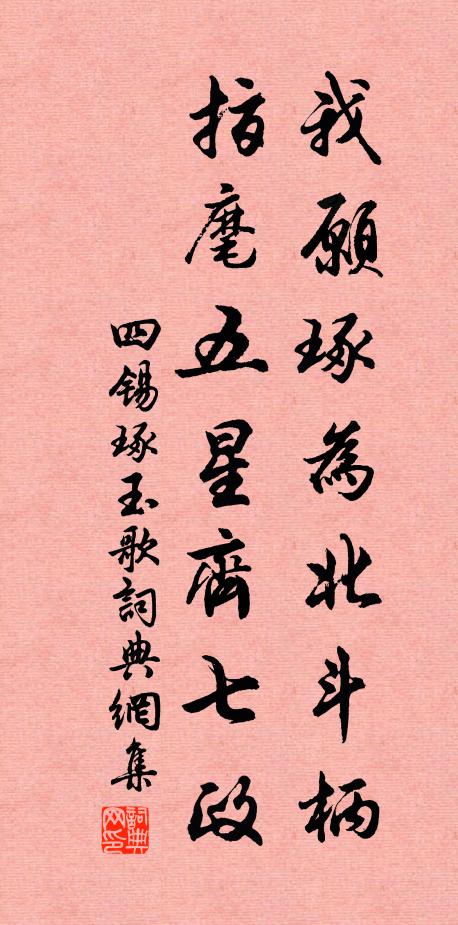 我願琢為北斗柄
指麾五星齊七政
四錫琢玉歌詞典網集
詞典网印